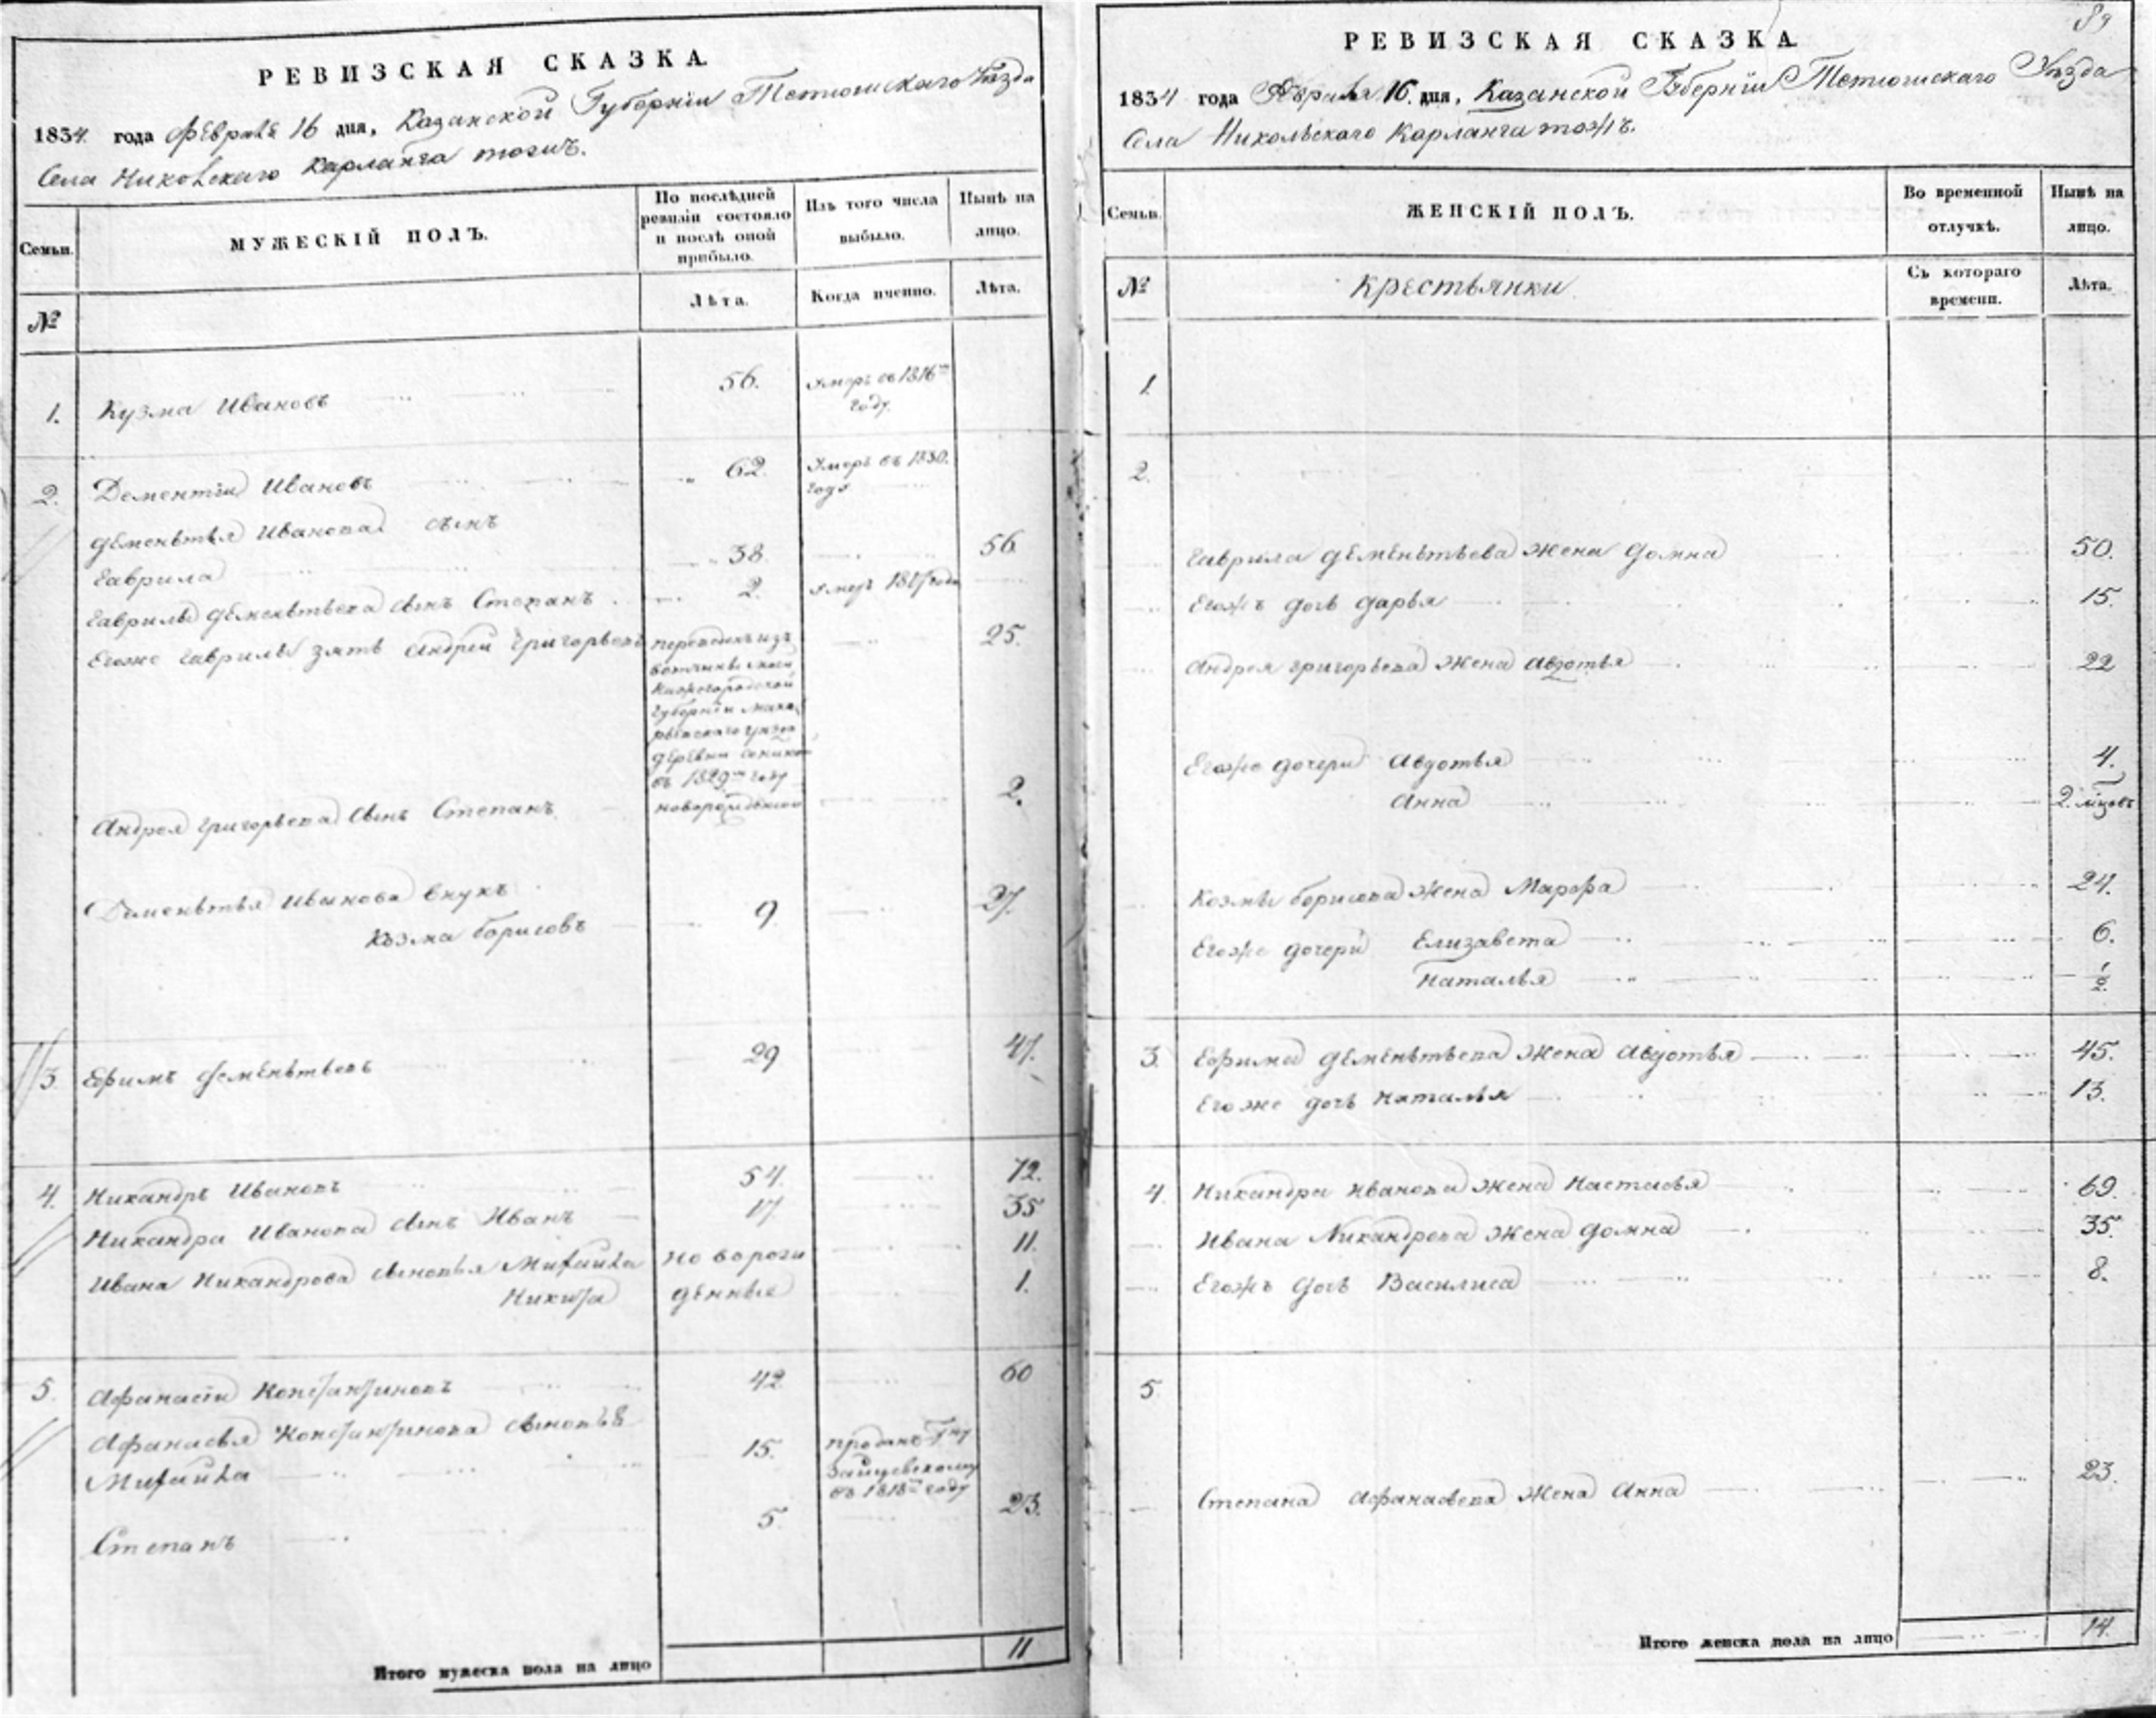 РЕВИЗСКАЯ СКАЗКА.
1834 года Февраля 16 дня, Казанской Губернiи Тетюшскаго Уѣзда
Села Никольскаго Карланга тожъ.
Семьи.
МУЖЕСКIЙ ПОЛЪ.
По послѣдней ревизiи состояло и послѣ оной прибыло.
Изъ того числа выбыло.
Нынѣ на лицо.
№
Лѣта.
Когда именно.
Лѣта.
1. Кузма Ивановъ 56. Умеръ въ 1816м году.
2. Дементiи Ивановъ 62. Умеръ въ 1830. году
Дементья Иванова сынъ
Гаврила 38 56
Гаврилы Дементьева сынъ Степанъ 2. умеръ года
Егоже Гаврилы зять Андреи Григорьевъ 25.
переведенъ изъ
вотчины
Нижегородской
Губернiи Мака
рьевскаго уезда
деревни
въ 1829м году
Андрея Григорьева сынъ Степанъ новорожденной 2.
Дементья Иванова внукъ
Козма Борисовъ 9 27.
3. Ефимъ Дементьевъ 29 47.
4. Никандръ Ивановъ 54. 72.
Никандра Иванова сынъ Иванъ 17. 35
Ивана Никандрова сыновья Михайла новорож 11.
Никита денные 1.
5. Афанасiи Константиновъ 42 60
Афанасья Константинова сыновья
Михайла 15. проданъ Гну
Зайцевскому
въ 1818м году
Степанъ 5. 23.
Итого мужеска пола на лицо 11
89
РЕВИЗСКАЯ СКАЗКА.
1834 года Февраля 16. дня, Казанской Губернiи Тетюшскаго Уѣзда
Села Никольскаго Карланга тожъ.
Семьи.
ЖЕНСКIЙ ПОЛЪ.
Во временной отлучкѣ.
Нынѣ на лицо.
№
Крестьянки
Съ котораго времени.
Лѣта.
1.
2.
Гаврила Дементьева жена Домна 50.
Егожъ дочь Дарья 15.
Андрея Григорьева жена Авдотья 22
Егоже дочери Авдотья 4.
Анна 2. мцовъ
Козмы Борисова жена Марфа 24.
Егоже дочери Елизавета 6.
Наталья 1/2.
3. Ефима Дементьева жена Авдотья 45.
Егоже дочь Наталья 13.
4. Никандра Иванова жена Настасья 69.
Ивана Никандрова жена Домна 35.
Егожъ дочь Василиса 8.
5.
Степана Афанасьева жена Анна 23.
Итого женска пола на лицо 14.